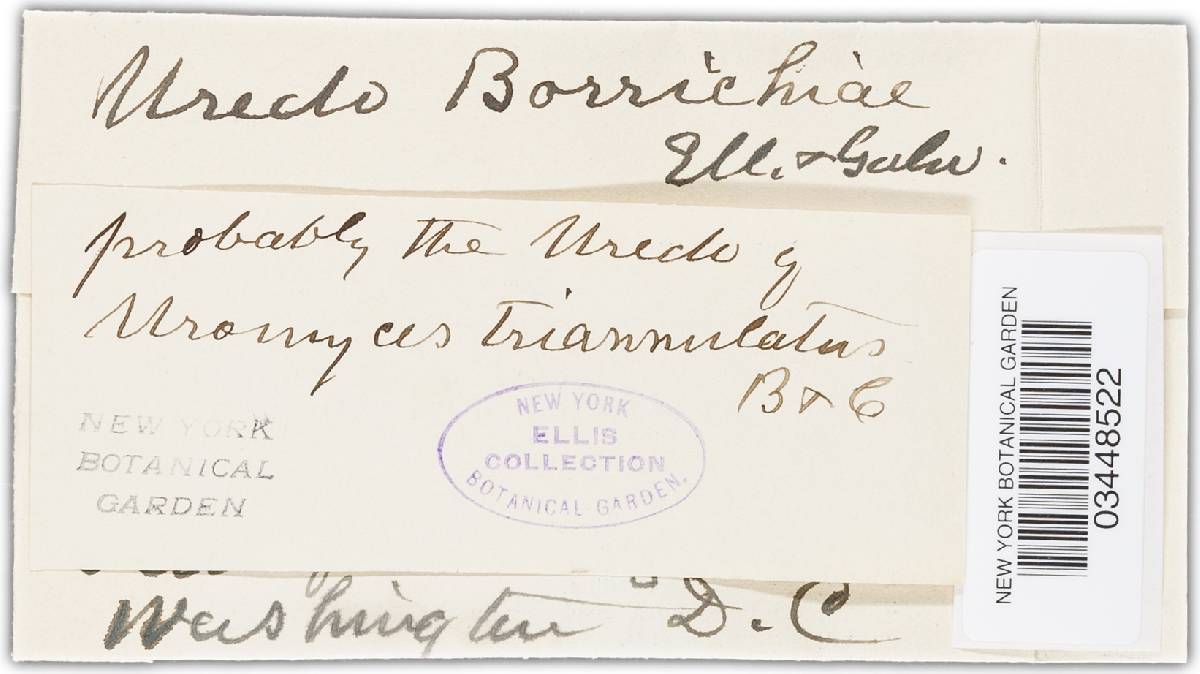 Uredo Borrichiae
Ell. & Galw.
probably the Uredo of
Uromyces triannulatus
B & C
NEW YORK
BOTANICAL
GARDEN
NEW YORK
ELLIS
COLLECTION
BOTANICAL GARDEN.
Washington D.C
NEW YORK BOTANICAL GARDEN
03448522